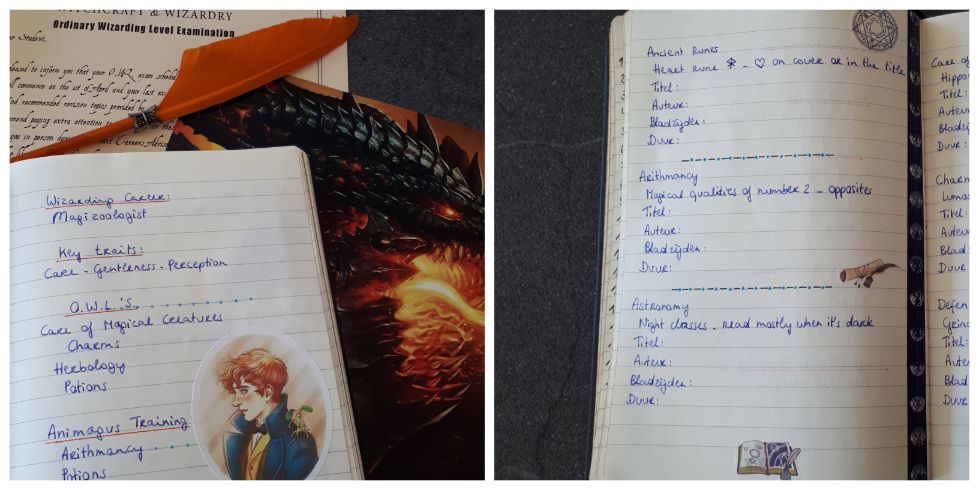 WITCHCRAFT & WIZARDRY
Ordinary Wizarding Level Examination
Student,
to inform you that your O.W.L. exam
commence on the 1st of April and your last
recommended revision topics provided by
paying extra attention to
you in person Careers
Wizarding Career:
Magizoologist
Key traits:
Care - Gentleness - Perception
O.W.L.'s
Care of Magical Creatures
Charms
Herbology
Potions
Animagus Training
Arithmancy
Potions
Ancient Runes
Heart Rune - ♡ on cover or in the title
Titel:
Auteur:
Bladzijden:
Duur:
Arithmancy
Magical qualities of number 2 - opposites
Titel:
Auteur:
Bladzijden:
Duur:
Astronomy
Night classes - read mostly when it's dark
Titel:
Auteur:
Bladzijden:
Duur:
Care of
Hippo
Titel:
Auteu
Bladzi
Duur:
Charm
Lumos
Titel:
Auteu
Bladz
Duur
Defen
Grind
Titel:
Aute
Blad
Duur